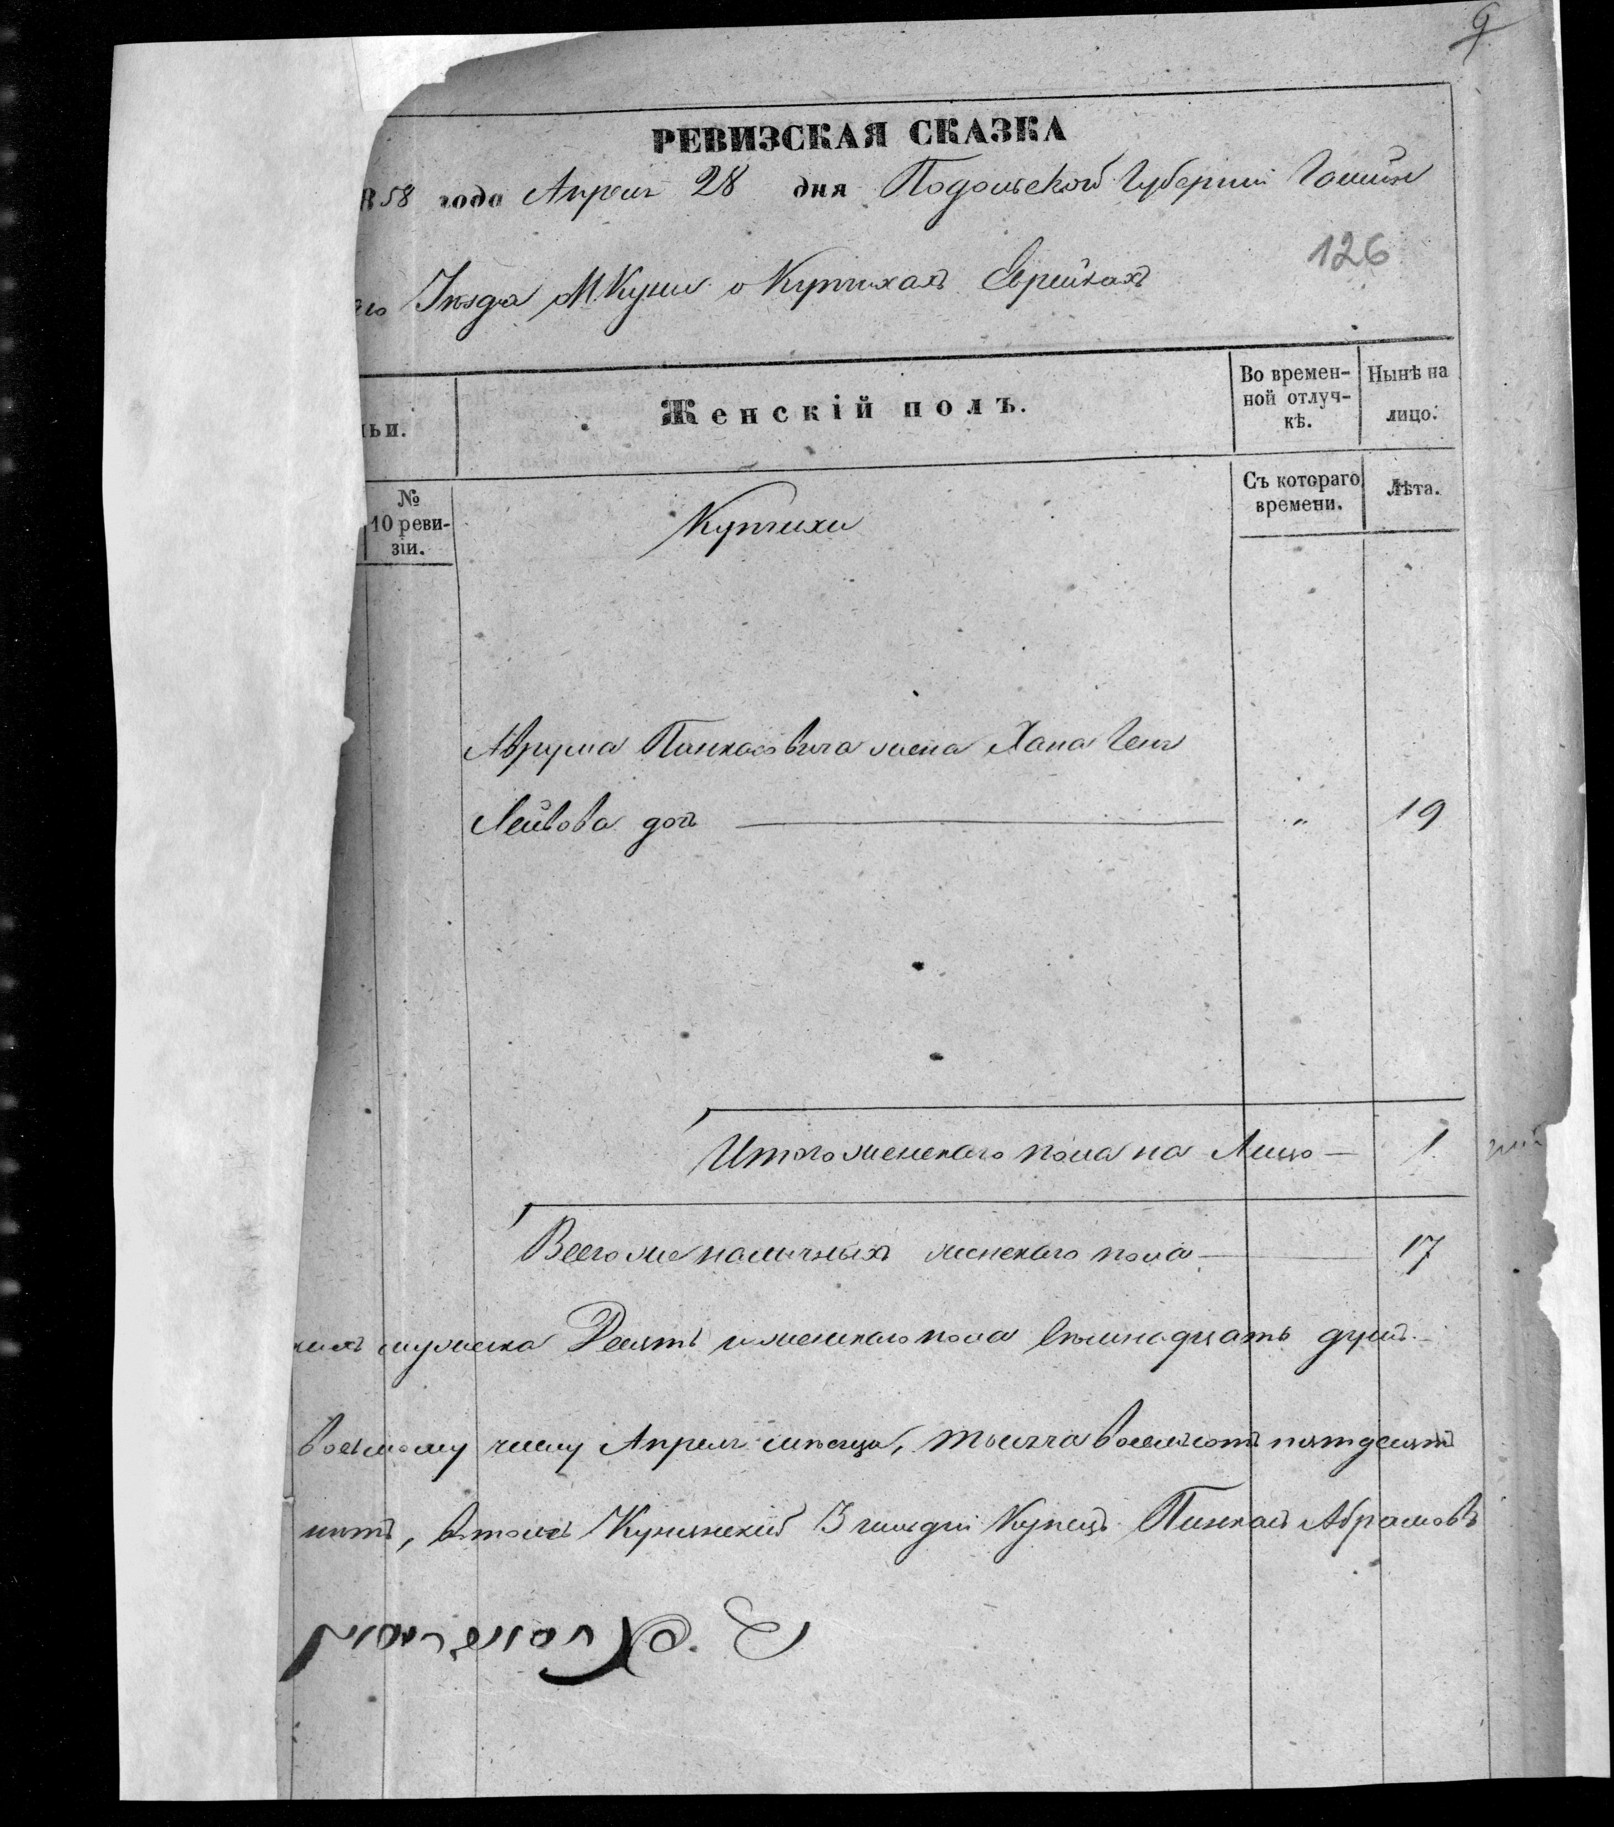 9
РЕВИЗСКАЯ СКАЗКА
858 года Апреля 28 дня Подольской Губернии Гайсин
го Уезда М. Куни о Купчихахъ Еврейкахъ
126
ьи.
Женскій полъ.
Во времен-
ной отлуч-
кѣ.
Нынѣ на
лицо.
№
10 реви-
зіи.
Съ котораго
времени.
Лѣта.
Купчихи
Аврума Пинкасовича жена Хана
Лейбова дочь " 19
Итого женскаго пола на Лицо 1
Всего же наличныхъ женскаго пола 17
мужеска Десять и женскаго пола семнадцать душъ
восьмому числу Апреля мѣсяца, тысяча восемьсотъ пятдесятъ
нятъ, въ томъ Кунянский 3 гильдии Купецъ Пинкасъ Абрамовъ